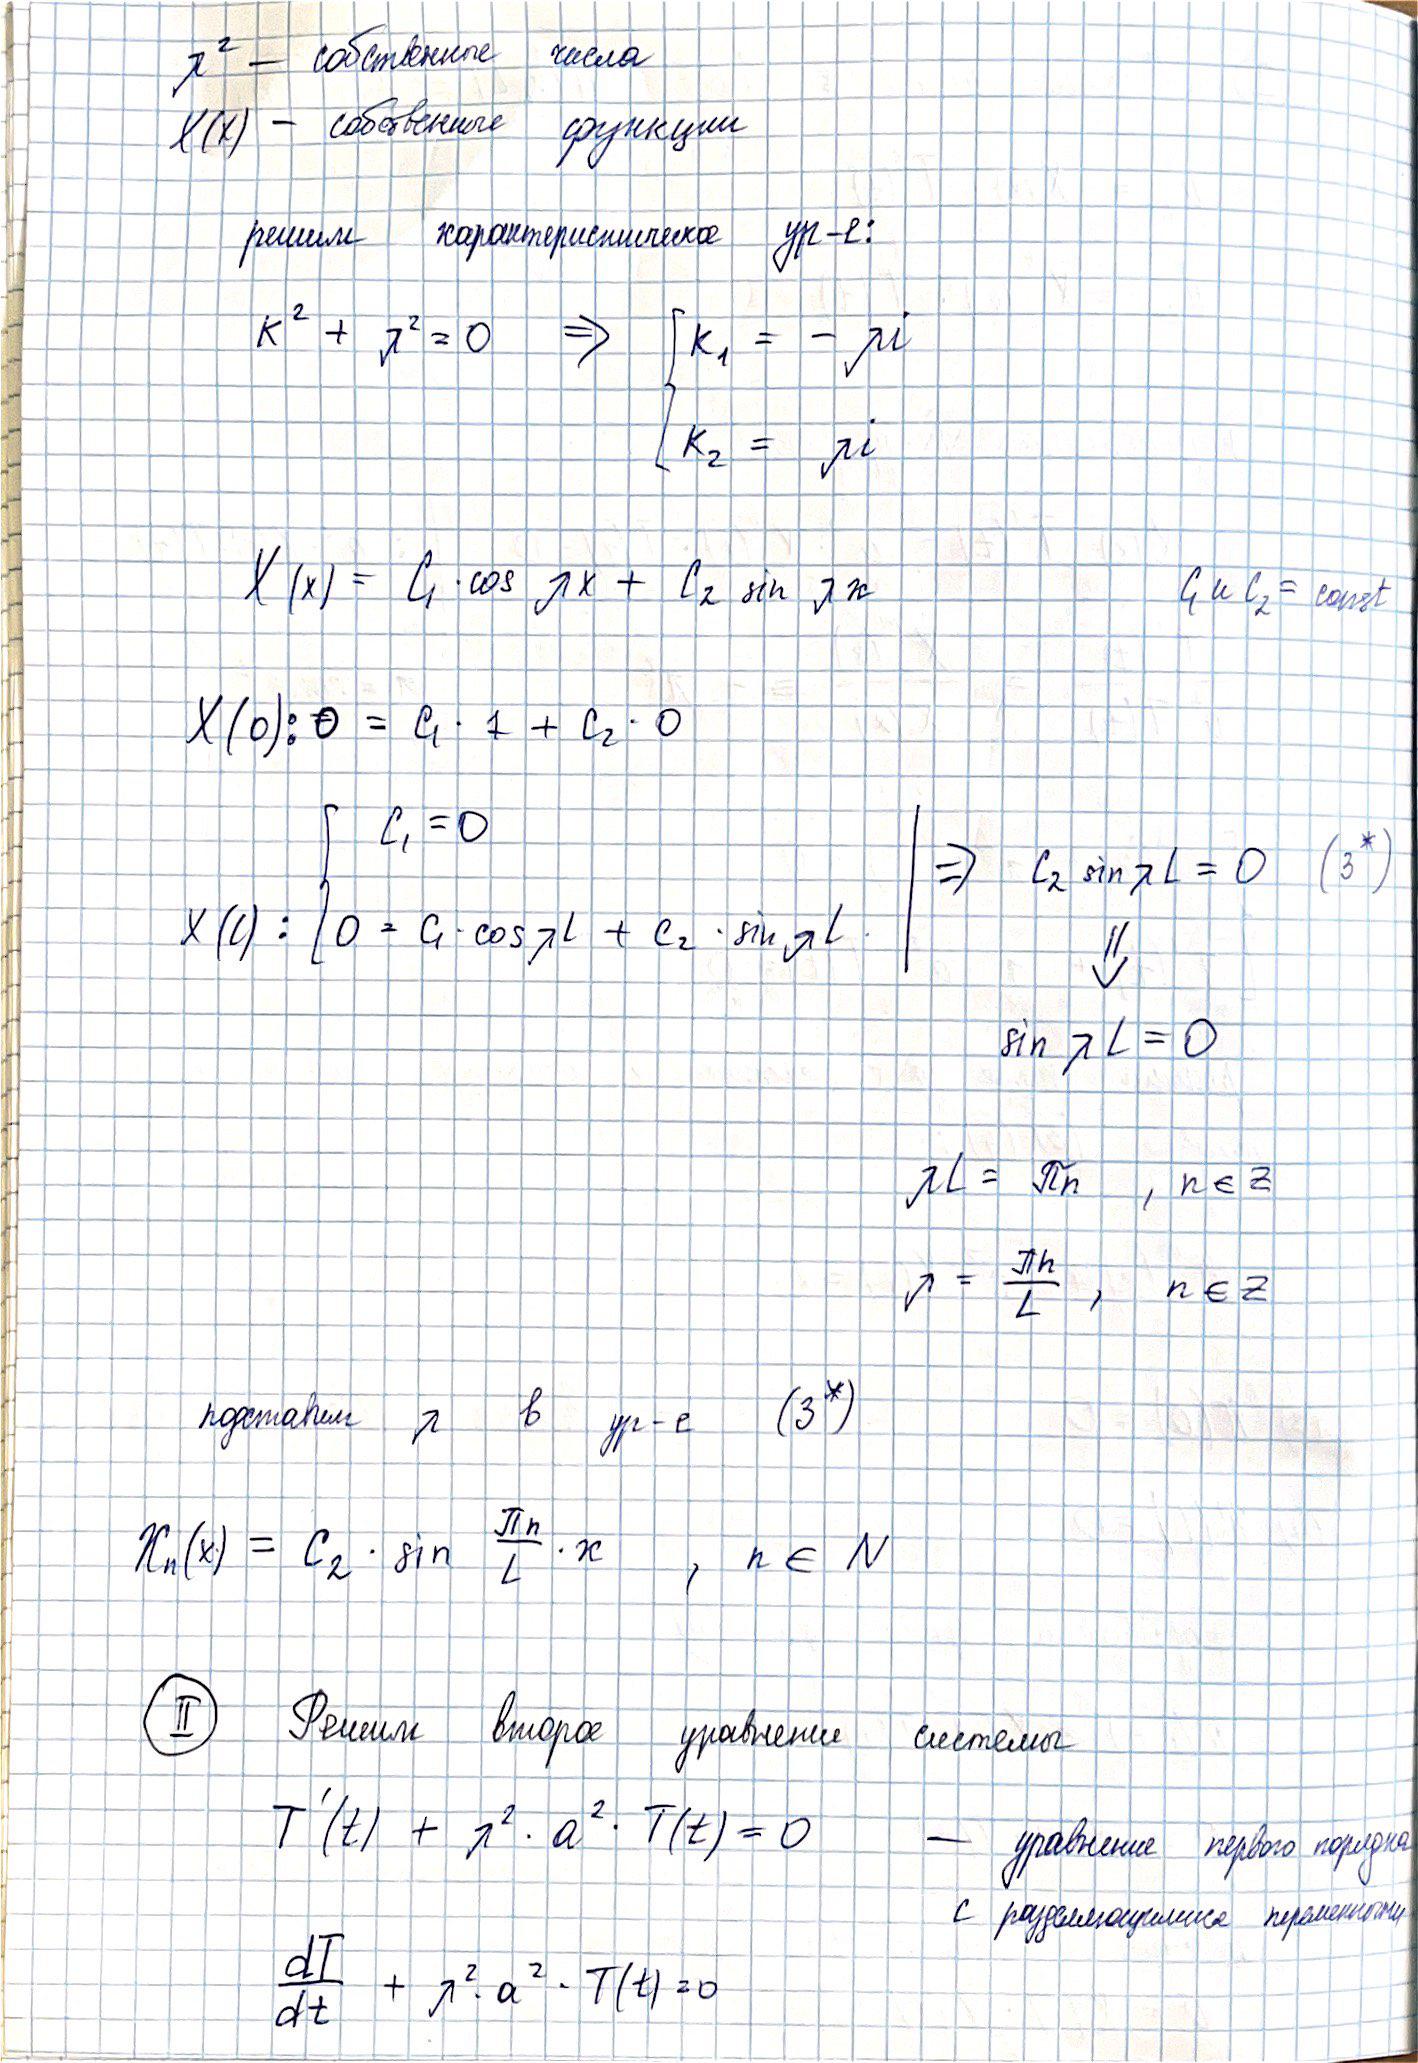 λ² — собственные числа
X(x) — собственные функции
решим характеристическое ур-е:
K² + λ² = 0 ⇒ { K₁ = - λi
K₂ = λi
X(x) = C₁·cos λx + C₂ sin λx C₁ и C₂ = const
X(0): 0 = C₁·1 + C₂·0
{ C₁ = 0
X(L): 0 = C₁·cos λL + C₂·sin λL. | ⇒ C₂ sin λL = 0 (3*)
⇓
sin λL = 0
λL = πn , n ∈ Z
λ = πn/L , n ∈ Z
подставим λ в ур-е (3*)
Xₙ(x) = C₂·sin πn/L · x , n ∈ N
II Решим второе уравнение системы
T'(t) + λ²·a²·T(t) = 0 — уравнение первого порядка
с разделяющимися переменными
dT/dt + λ²·a²·T(t) = 0